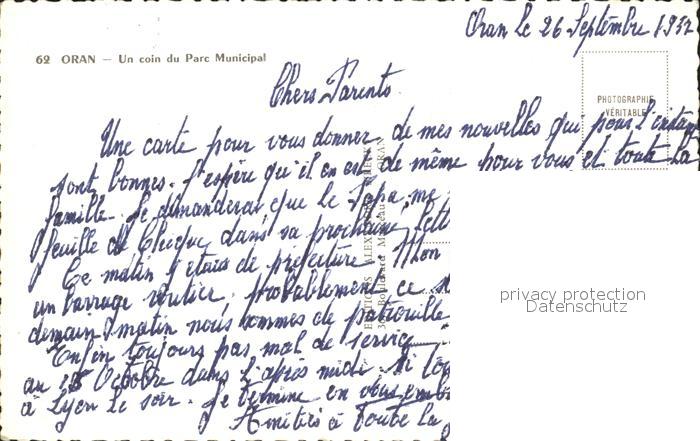 Oran Le 26 Septembre 1957
62 ORAN — Un coin du Parc Municipal
Chers Parents
PHOTOGRAPHIE
VÉRITABLE
Une carte pour vous donner de mes nouvelles qui pour l'instant
sont bonnes. J'espère qu'il en est de même pour vous et toute la
famille. Je demanderai que le Papa me
feuille de Chèque dans sa prochaine lett
Ce matin j'étais de préfecture. Mon
un barrage routier, probablement ce
demain matin nous sommes de patrouille
Enfin toujours pas mal de service
au 15 Octobre dans l'après midi. Si
à Lyon le soir. Je termine en vous emb
Amitiés à toute la
ORAN
privacy protection
Datenschutz